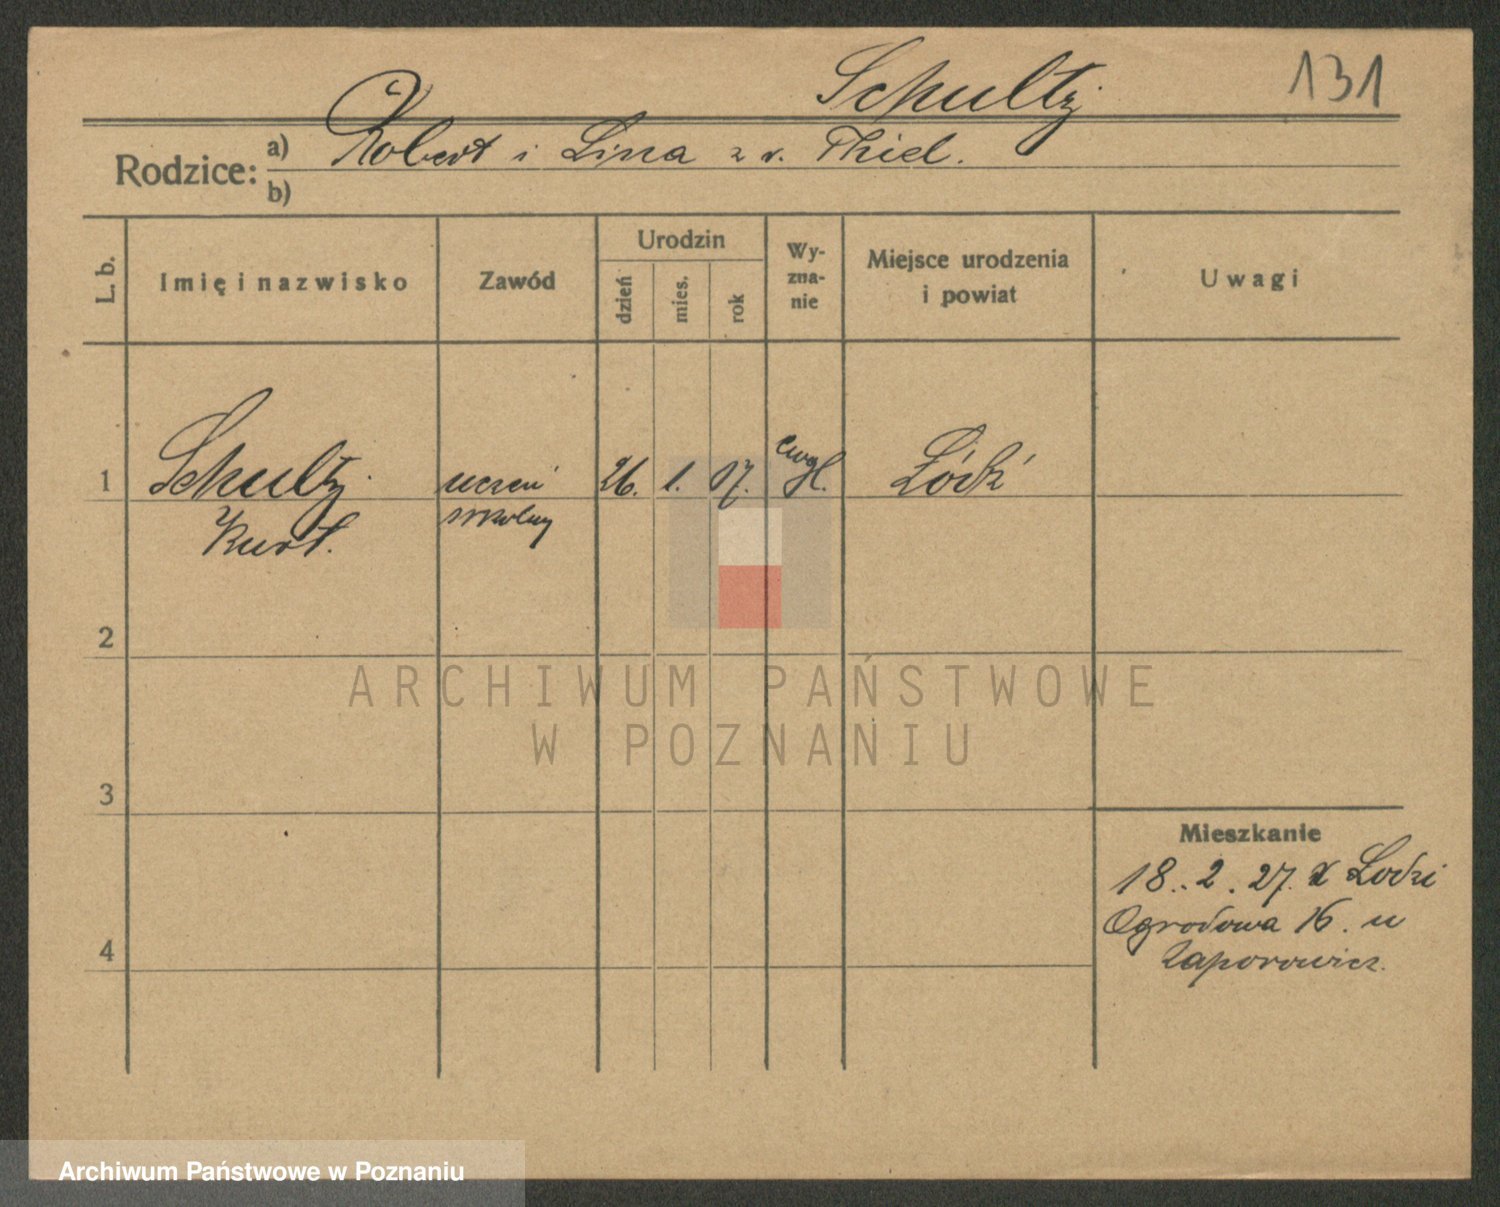 Schultz
131
Rodzice:
a) Robert i Lina z d. Thiel.
b)
L. b.
Imię i nazwisko
Zawód
Urodzin
dzień
mies.
rok
Wy-
zna-
nie
Miejsce urodzenia
i powiat
Uwagi
1 Schultz uczeń 26. 1. 17. ewgl. Łódź
Kurt. szkolny
2
3
4
Mieszkanie
18. 2. 27. z Łodzi
Ogrodowa 16. u
Zaporowicz.
ARCHIWUM PAŃSTWOWE
W POZNANIU
Archiwum Państwowe w Poznaniu